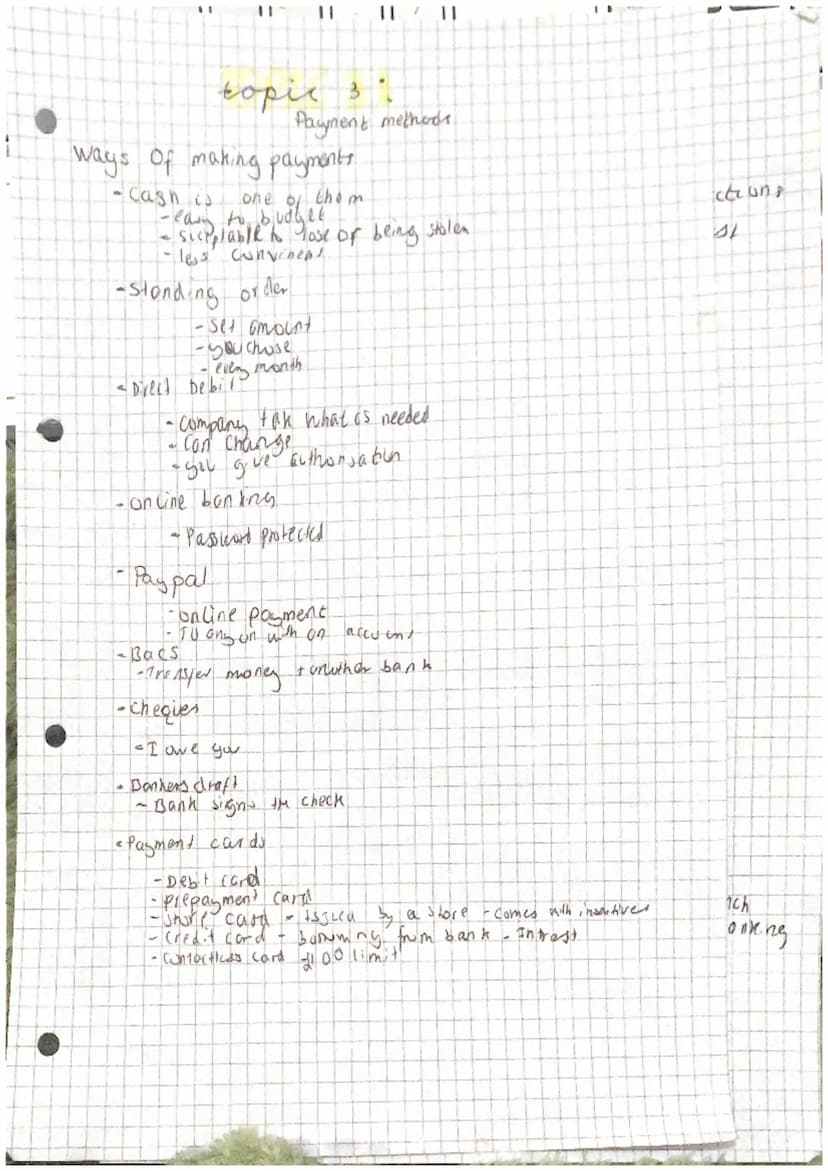 topic 3:
Payment methods
Ways Of making payments
- Cash is one of them
- easy to budget
- suceptable to lose or being stolen
- less convinent
- Standing order
- Set amount
- you chose
- every month
- Direct Debit
- Company tak what is needed
- Can change
- you give authorsation
- online banking
- Password protected
- Paypal
- online payment
- To anyon with an account
- Bacs
- Transfer money t another bank
- cheques
- I owe you
- Bankers draft
- Bank signs the check
- Payment cards
- Debit card
- Prepayment card
- Store card - issued by a store - comes with incentives
- Credit card - borrowing from bank - Intrest
- Contactless card £100 limit
ctions
st
nch
onking